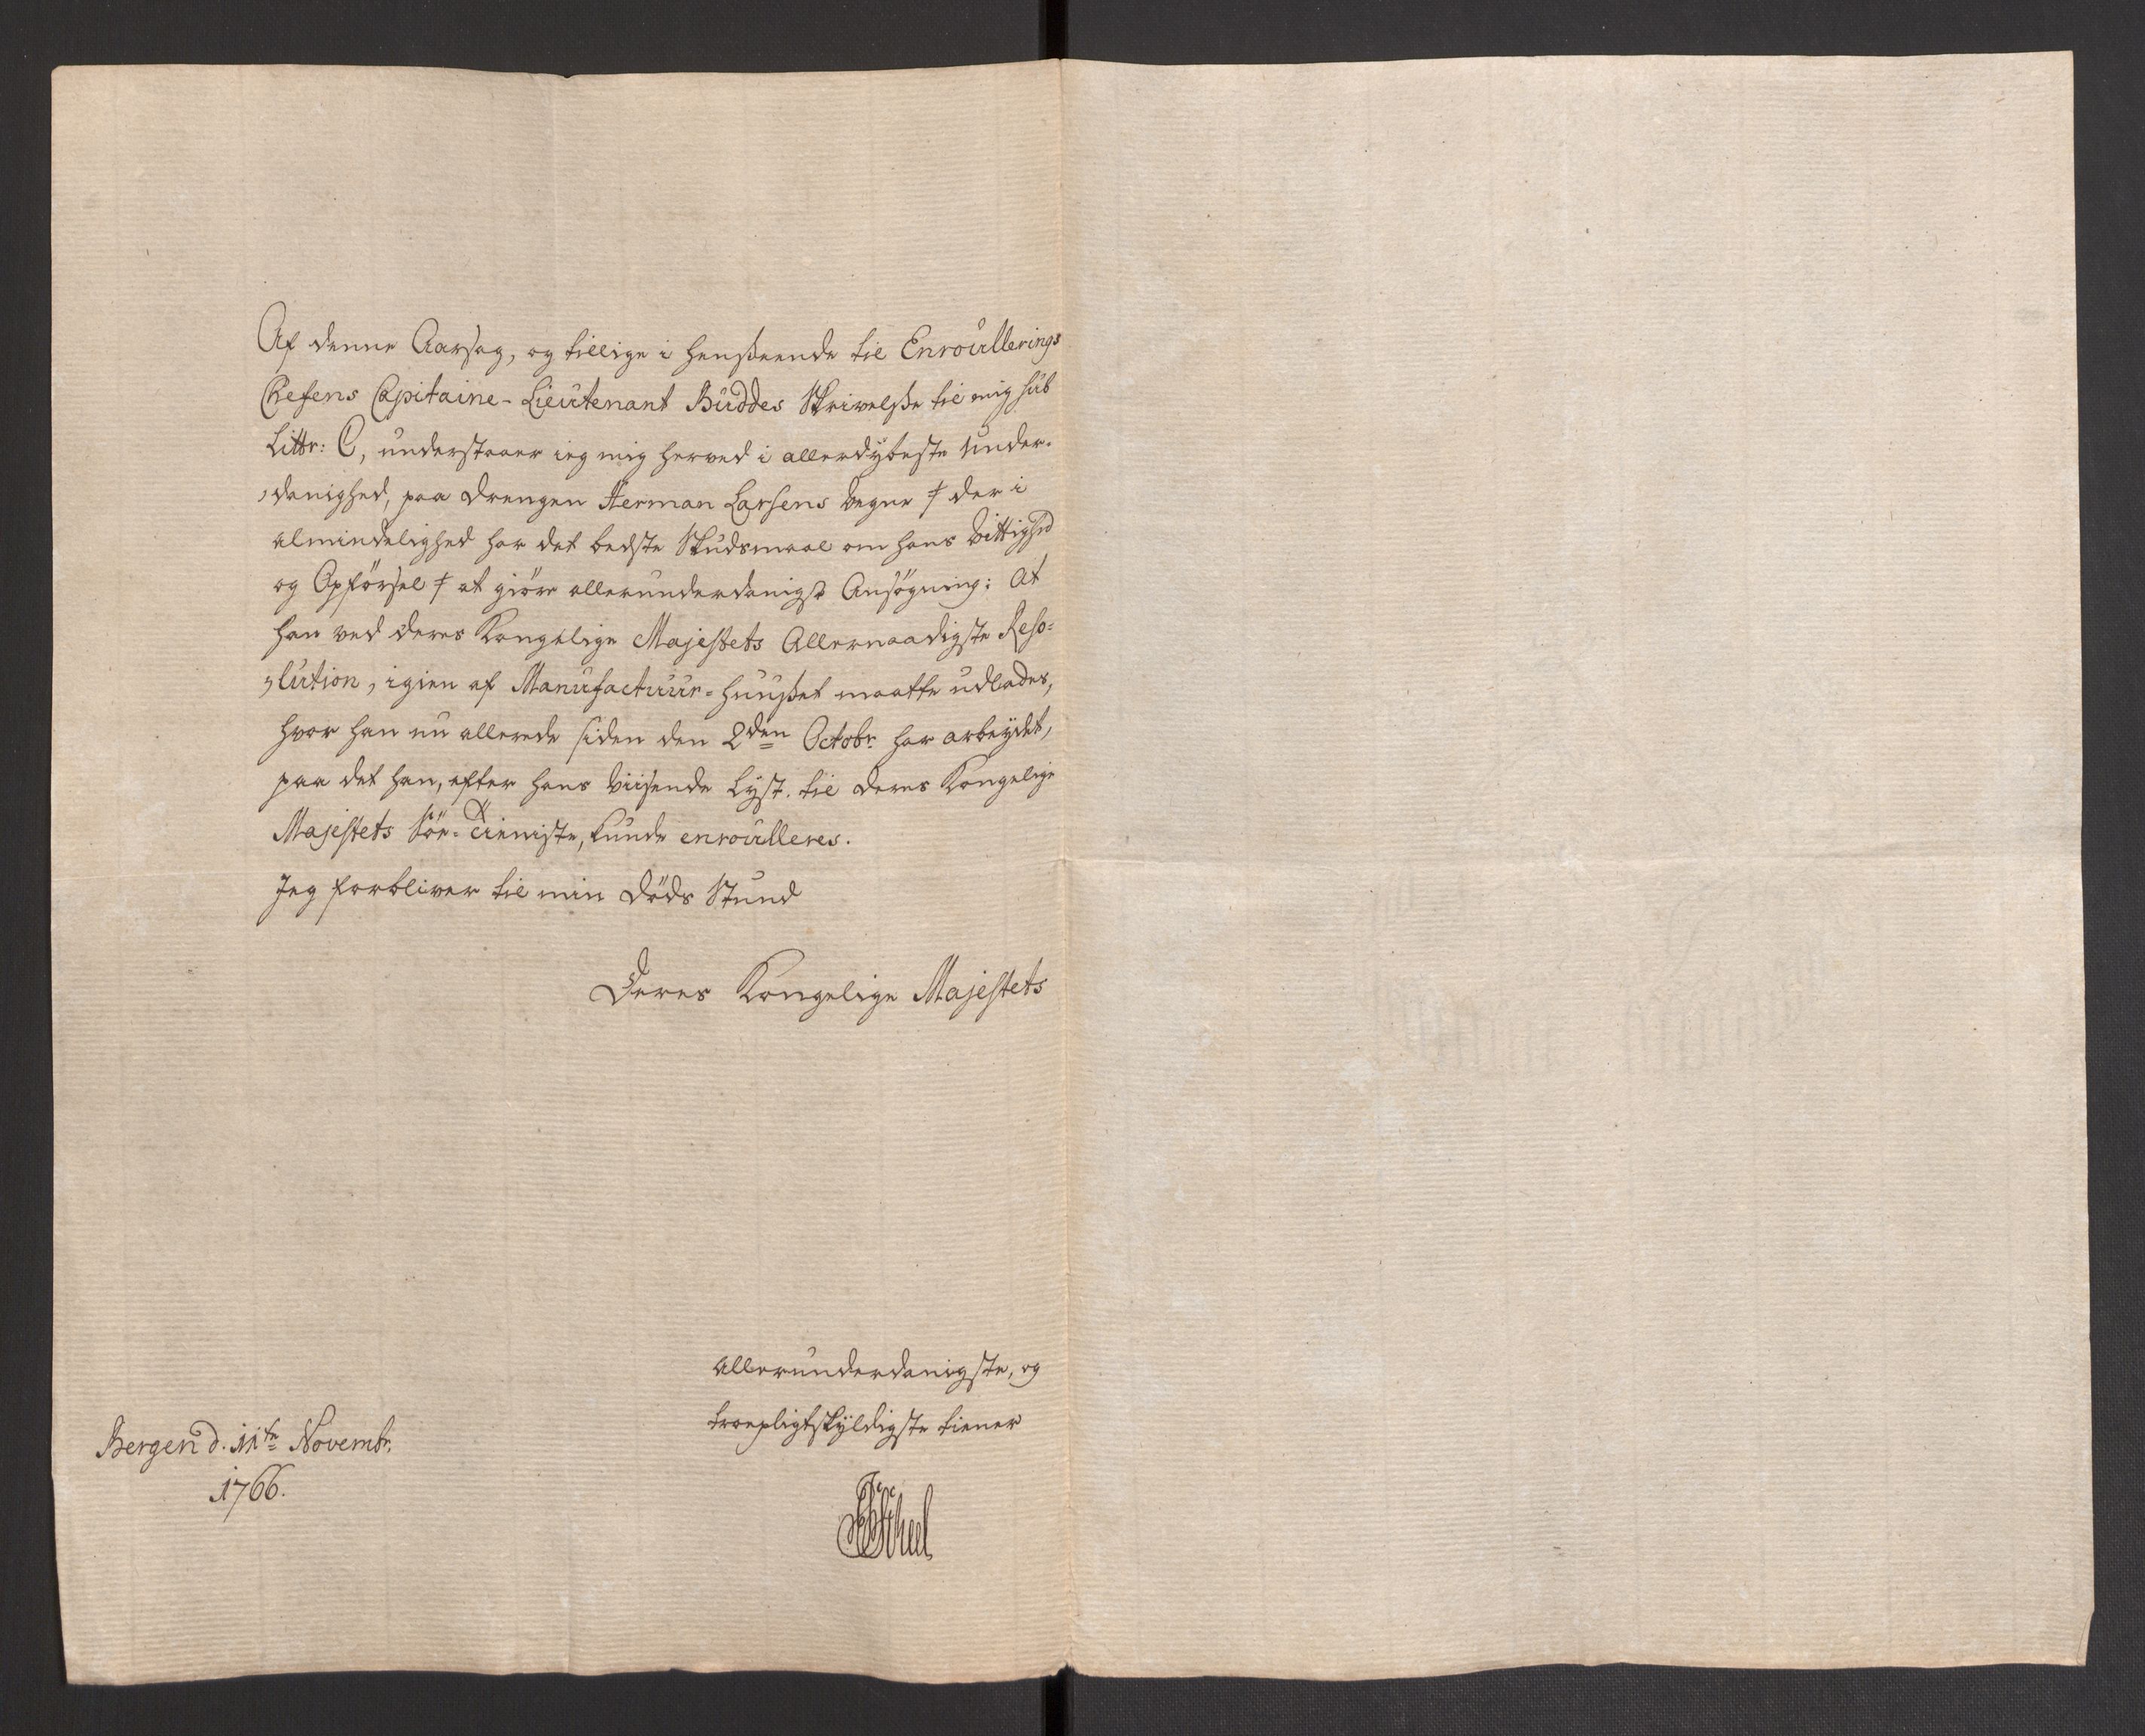 Af denne Aarsag, og tillige i henseende til Enroullerings
Chefens Capitaine-Lieutenant Buddes Skrivelse til mig sub
Littr: C, understaaer ieg mig herved i allerdybeste Under-
danighed, paa Drengen Herman Larsens Vegne /: der i
almindelighed har det bedste Skudsmaal om hans Vittighed
og Opförsel :/ at giöre allerunderdanigst Ansögning: At
han ved Deres Kongelige Majestets Allernaadigste Reso-
lution, igien af Manufactuur-Huuset maatte udlades,
hvor han nu allerede siden den 2den Octobr. har arbeydet,
paa det han, efter hans viisende Lyst til Deres Kongelige
Majestets Söe-Tieniste, kunde enroulleres.
Jeg forbliver til min Döds Stund
Deres Kongelige Majestets
allerunderdanigste, og
troepligtskyldigste tiener
Bergen d. 11te Novembr.
1766.